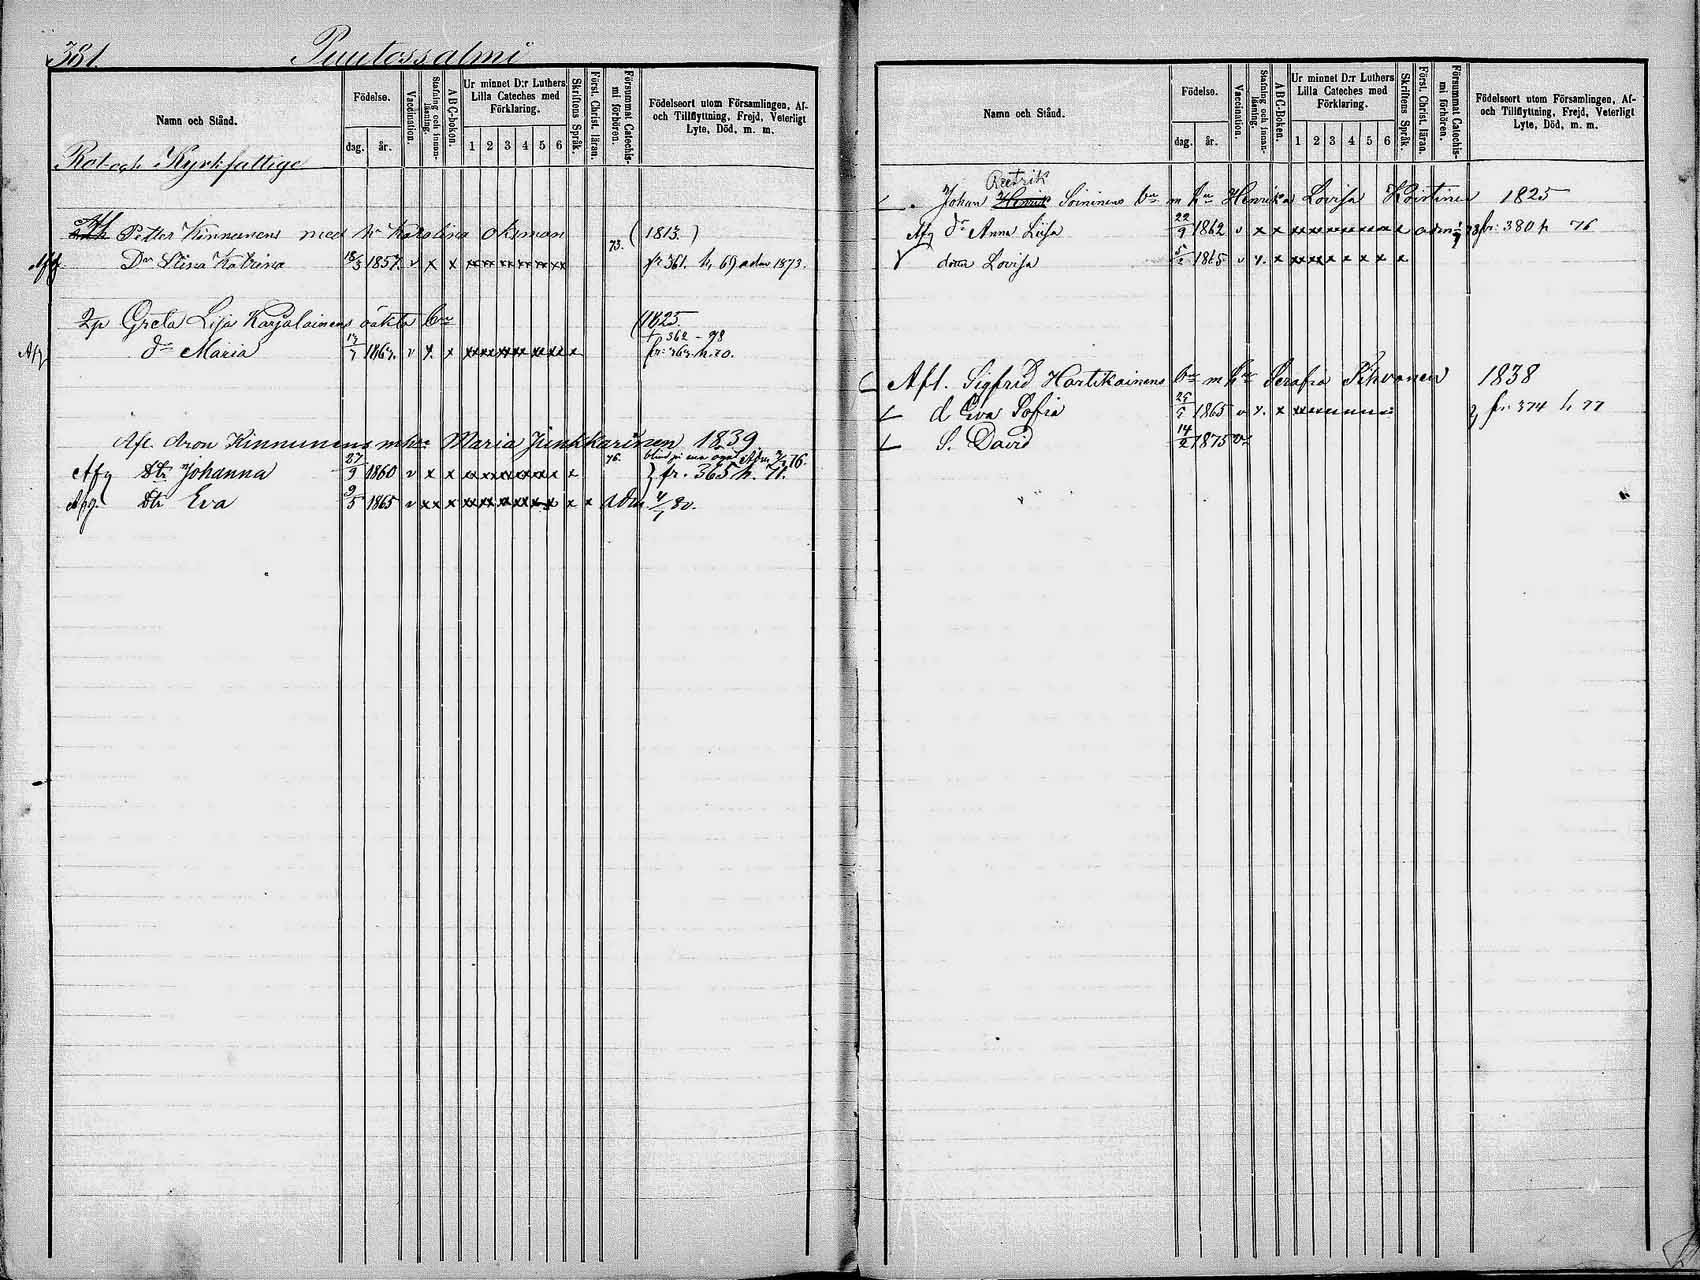 381. Puutossalmi
Namn och Stånd.
Födelse.
dag. år.
Vaccination.
Stafning och innanläsning.
ABC-boken.
Ur minnet D:r Luthers Lilla Cateches med Förklaring.
1 2 3 4 5 6
Skriftens Språk.
Först. Christ. läran.
Försummat Catechismi förhören.
Födelseort utom Församlingen, Af- och Tillflyttning, Frejd, Veterligt Lyte, Död, m. m.
Rot och Kyrkfattige
Petter Kinnunens med h Karolina Oksman (1813.)
Dr Stina Katrina 18/3 1857. v x x xx xx xx xx xx xx 73. fr 361. h, 69 adm 1873.
2p Greta Lisa Karjalainens oäkta (1825.
+ 362 - 78
Afg dr Maria 1867. v x. x xx xx xx xx xx xx x
Afl. Aron Kinnunens m hra Maria Junkkarinen 1839.
Afg Dtr Johanna 27/9 1860 v x x xx xx xx xx xx xx x 76. } fr. 365 h. 71.
Afg. Dtr Eva 9/5 1865 v xx x xx xx xx xx xx xx x x adm 4/7 80.
Namn och Stånd.
Födelse.
dag. år.
Vaccination.
Stafning och innanläsning.
ABC-Boken.
Ur minnet D:r Luthers Lilla Cateches med Förklaring.
1 2 3 4 5 6
Skriftens Språk.
Först. Christ. läran.
Försummat Catechismi förhören.
Födelseort utom Församlingen, Af- och Tillflyttning, Frejd, Veterligt Lyte, Död, m. m.
Johan Henrik Soininens m Henrika Lovisa Koistinen 1825
Afg dr Anna Lisa 22/9 1862 v x x adm fr: 380 h 76
dotra Lovisa 1865 v x. x
Afl. Sigfrid Hartikainens m Serafia Pihvonen 1838
d Eva Sofia 25/5 1865 v x. x fr 374 h 77
S. David 14/2 1875 v.